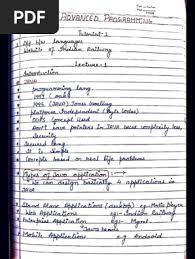 ADVANCED PROGRAMMING
Tutorial-1
languages
Website of Indian Railway
Lecture-1
Introduction
JAVA
programming lang.
1995
1996 (JAVA) James Gosling
Platform Independent (Byte Codes)
OOPs concept used
Don't save pointers in JAVA because complexity, less
Security
Secured lang.
It is simple
Concepts based on real life problems
Types of Java application :
We can design basically 4 applications in
JAVA
Stand Alone Applications (desktop) eg- Media Player
Web Applications eg- Indian Railway
Enterprise Application eg-
Java beans
Mobile Applications eg- Android